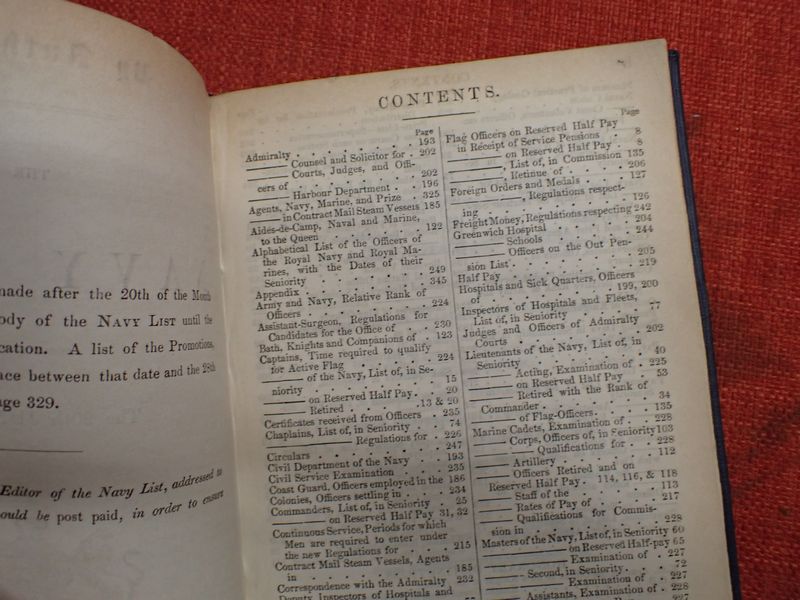 THE
made after the 20th of the Month
ody of the NAVY LIST until the
cation. A list of the Promotions,
ace between that date and the 28th
age 329.
Editor of the Navy List, addressed to
ould be post paid, in order to ensure
CONTENTS.
Page
Admiralty . . . . . . 193
—— Counsel and Solicitor for . 202
—— Courts, Judges, and Offi-
cers of . . . . . . 202
—— Harbour Department . . 196
Agents, Navy, Marine, and Prize . 325
—— in Contract Mail Steam Vessels 185
Aides-de-Camp, Naval and Marine,
to the Queen . . . . . 122
Alphabetical List of the Officers of
the Royal Navy and Royal Ma-
rines, with the Dates of their
Seniority . . . . . . 249
Appendix . . . . . . 345
Army and Navy, Relative Rank of
Officers . . . . . . 224
Assistant-Surgeon, Regulations for
Candidates for the Office of . . 230
Bath, Knights and Companions of . 123
Captains, Time required to qualify
for Active Flag . . . . 224
—— of the Navy, List of, in Se-
niority . . . . . . 15
—— on Reserved Half Pay . . 20
—— Retired . . . .13 & 20
Certificates received from Officers . 235
Chaplains, List of, in Seniority . 74
—— Regulations for . . 226
Circulars . . . . . . 247
Civil Department of the Navy . 193
Civil Service Examination . . . 235
Coast Guard, Officers employed in the 186
Colonies, Officers settling in . . . 234
Commanders, List of, in Seniority . 25
—— on Reserved Half Pay 31, 32
Continuous Service, Periods for which
Men are required to enter under
the new Regulations for . . . 215
Contract Mail Steam Vessels, Agents
in . . . . . . . 185
Correspondence with the Admiralty 232
Deputy Inspectors of Hospitals and
Page
Flag Officers on Reserved Half Pay
in Receipt of Service Pensions . 8
—— on Reserved Half Pay . . 8
—— List of, in Commission 135
—— Retinue of . . . . 206
Foreign Orders and Medals . . . 127
—— Regulations respect-
ing . . . . . . . 126
Freight Money, Regulations respecting 242
Greenwich Hospital . . . . 204
—— Schools . . . 244
—— Officers on the Out Pen-
sion List . . . . . . 205
Half Pay . . . . . . 219
Hospitals and Sick Quarters, Officers
of . . . . . . 199, 200
Inspectors of Hospitals and Fleets,
List of, in Seniority . . . . 77
Judges and Officers of Admiralty
Courts . . . . . . 202
Lieutenants of the Navy, List of, in
Seniority . . . . . . 40
—— Acting, Examination of . 225
—— on Reserved Half Pay . 53
—— Retired with the Rank of
Commander . . . . . 34
—— of Flag-Officers. . . . 135
Marine Cadets, Examination of . . 228
—— Corps, Officers of, in Seniority 103
—— Qualifications for . . 228
—— Artillery . . . . . 112
—— Officers Retired and on
Reserved Half Pay . 114, 116, & 118
—— Staff of the . . . . 113
—— Rates of Pay of . . . 217
—— Qualifications for Commis-
sion in . . . . . . 228
Masters of the Navy, List of, in Seniority 60
—— on Reserved Half-pay 65
—— Examination of . . 227
—— Second, in Seniority. . . 72
—— Examination of . . 227
—— Assistants, Examination of . 228
227